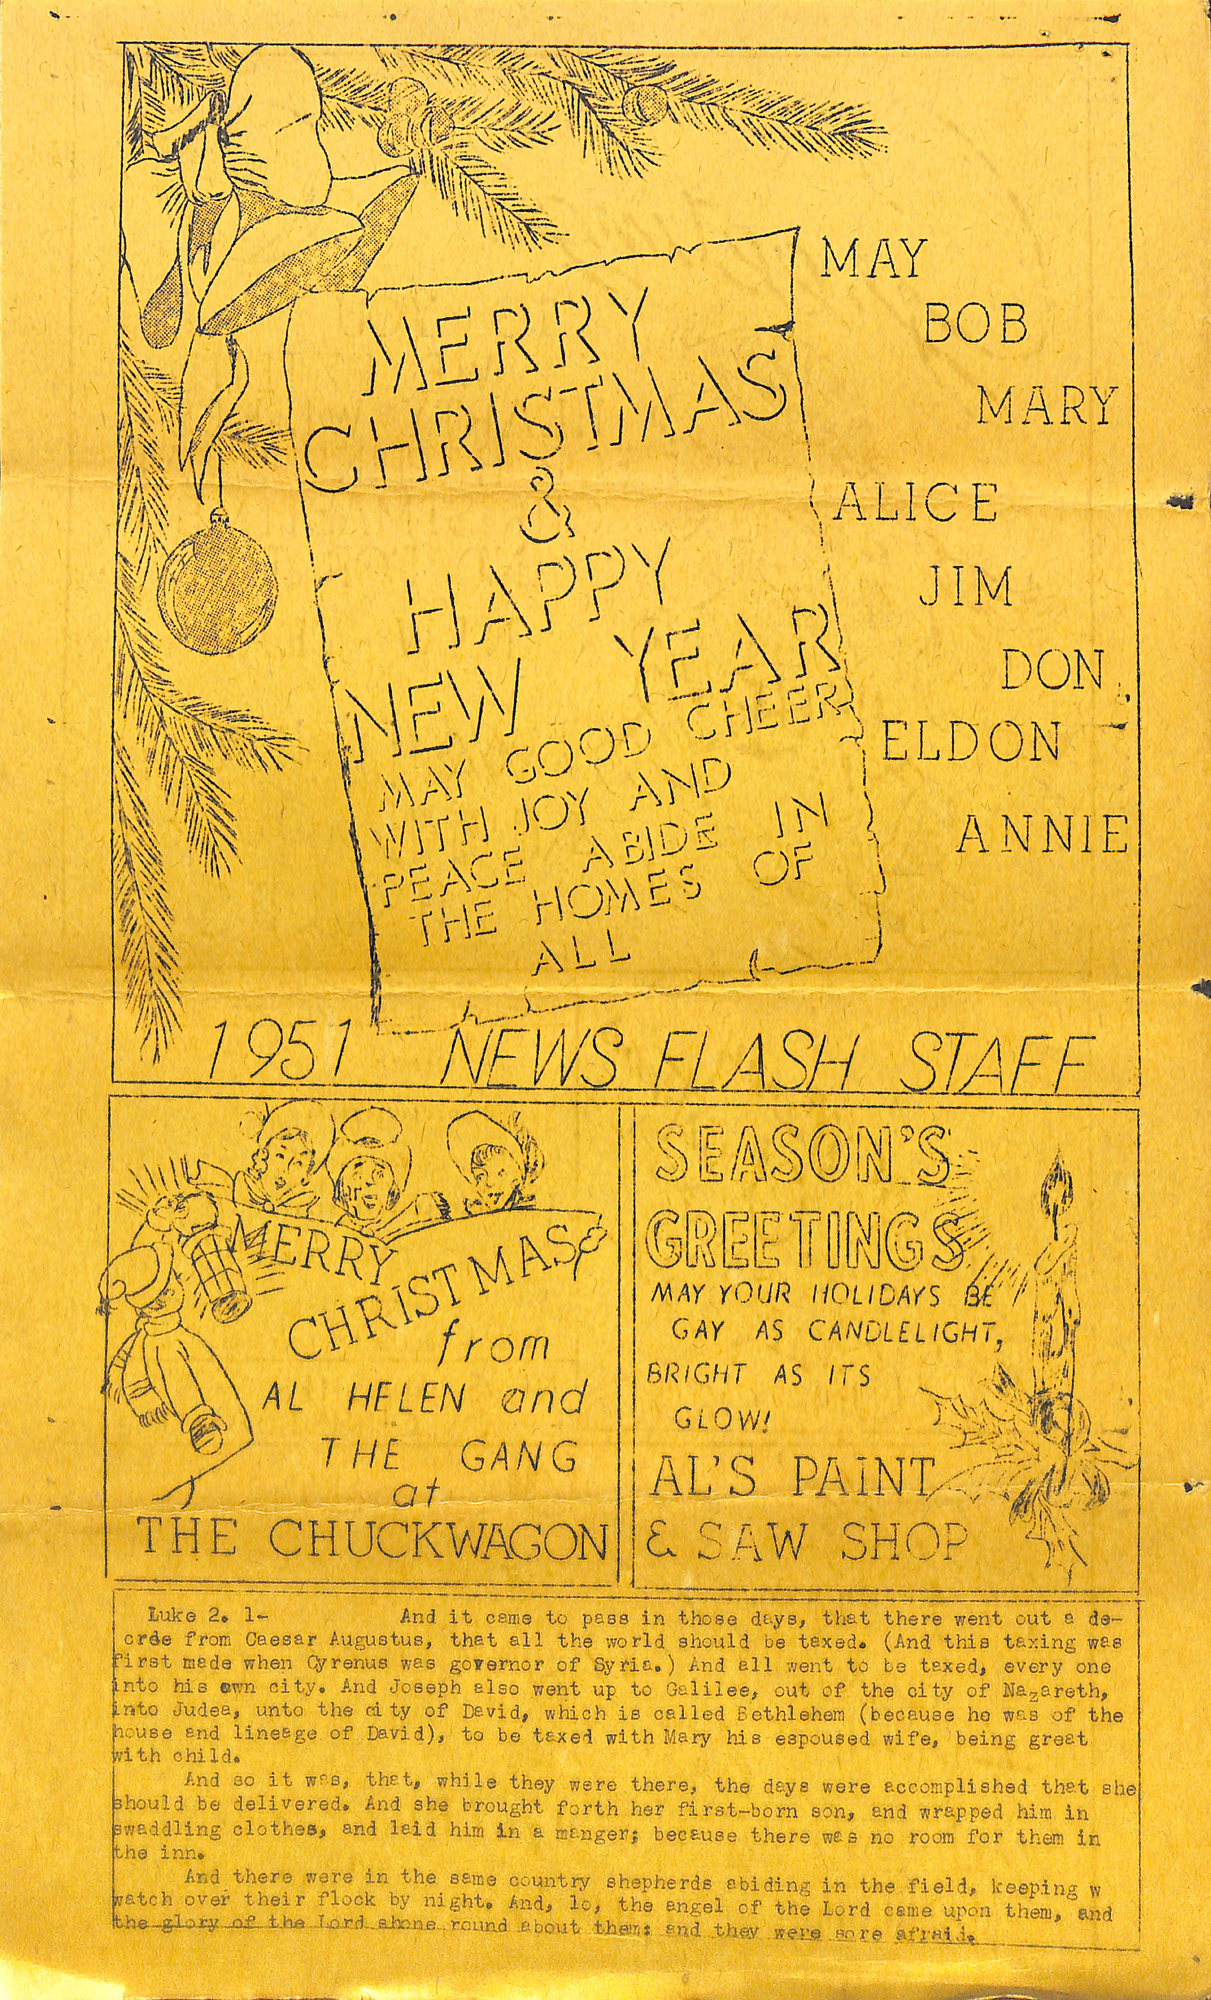 MERRY
CHRISTMAS
&
HAPPY
NEW YEAR
MAY GOOD CHEER
WITH JOY AND
PEACE ABIDE IN
THE HOMES OF
ALL
MAY
BOB
MARY
ALICE
JIM
DON
ELDON
ANNIE
1951 NEWS FLASH STAFF
MERRY
CHRISTMAS
from
AL HELEN and
THE GANG
at
THE CHUCKWAGON
SEASON'S
GREETINGS
MAY YOUR HOLIDAYS BE
GAY AS CANDLELIGHT,
BRIGHT AS ITS
GLOW!
AL'S PAINT
& SAW SHOP
Luke 2. 1- And it came to pass in those days, that there went out a de-
crde from Caesar Augustus, that all the world should be taxed. (And this taxing was
first made when Cyrenus was governor of Syria.) And all went to be taxed, every one
into his own city. And Joseph also went up to Galilee, out of the city of Nazareth,
into Judea, unto the city of David, which is called Bethlehem (because he was of the
house and lineage of David), to be taxed with Mary his espoused wife, being great
with child.
And so it was, that, while they were there, the days were accomplished that she
should be delivered. And she brought forth her first-born son, and wrapped him in
swaddling clothes, and laid him in a manger; because there was no room for them in
the inn.
And there were in the same country shepherds abiding in the field, keeping w
watch over their flock by night. And, lo, the angel of the Lord came upon them, and
the glory of the Lord shone round about them: and they were sore afraid.